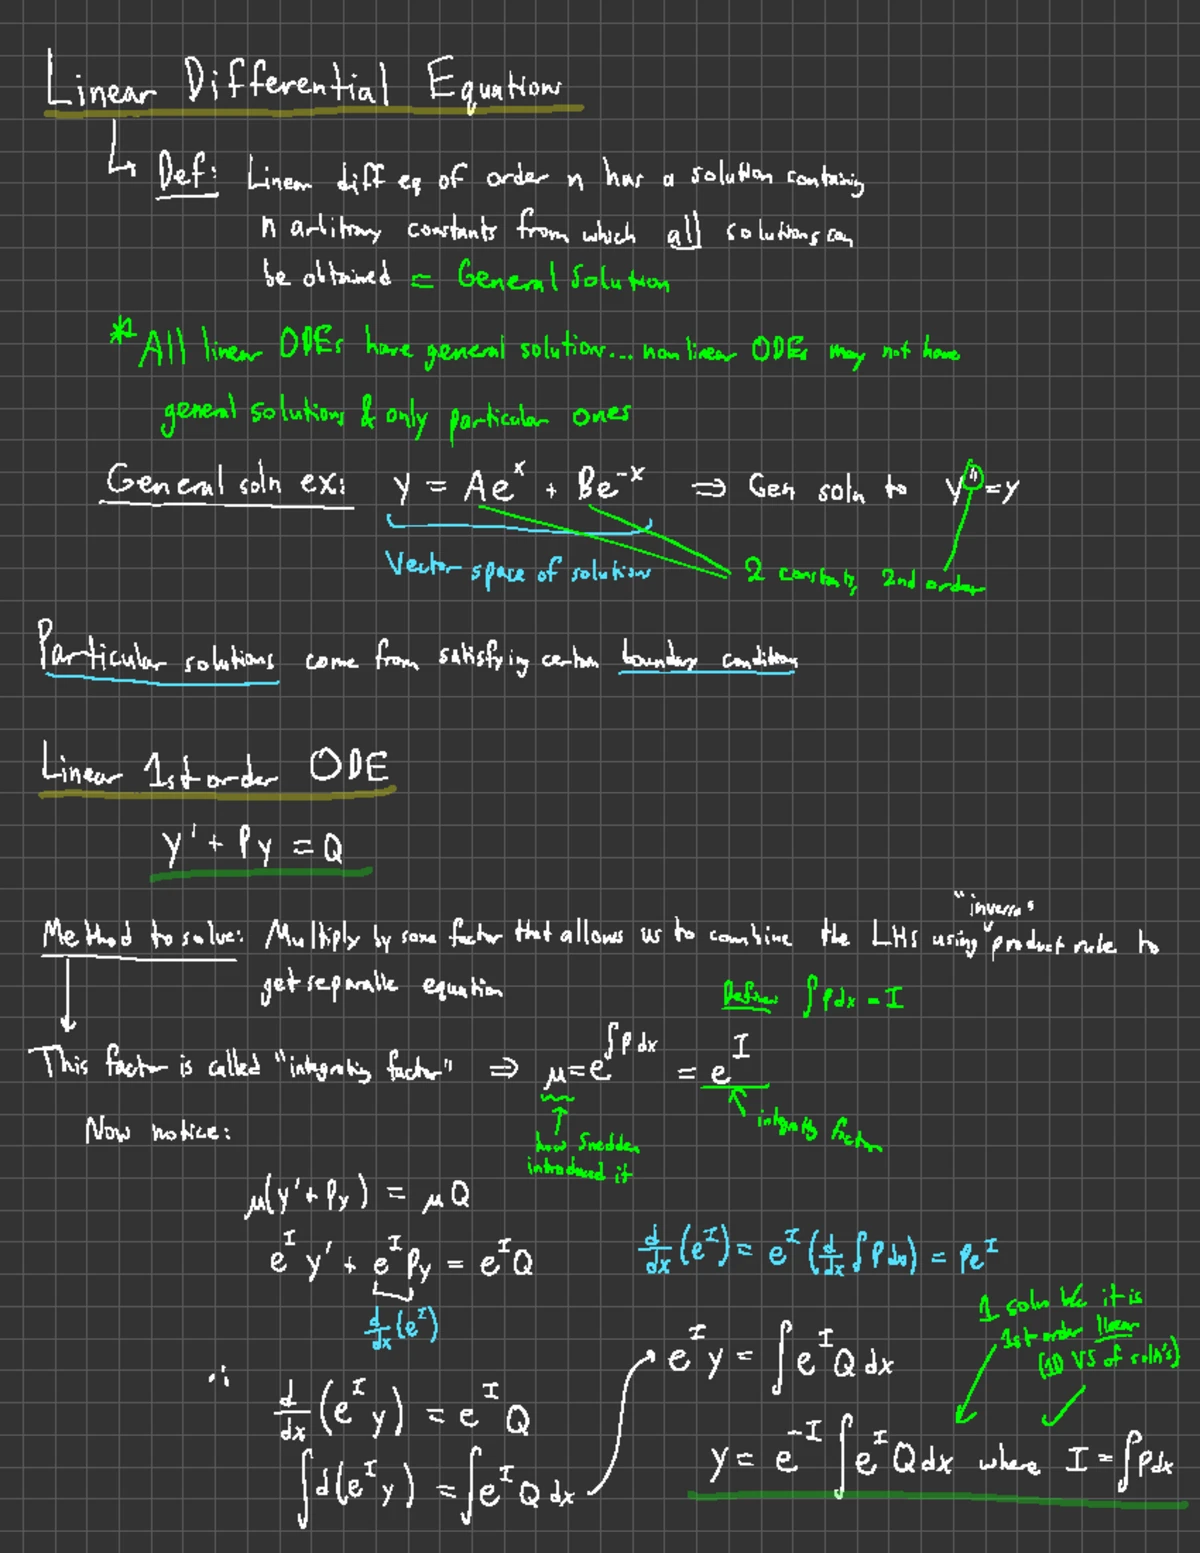 Linear Differential Equations
↳ Def: Linear diff eq of order n has a solution containing
n arbitrary constants from which all solutions can
be obtained = General Solution
* All linear ODEs have general solutions... non linear ODEs may not have
general solutions & only particular ones
General soln ex: y = Ae^x + Be^-x ⇒ Gen soln to y'' = y
Vector space of solutions
2 constants, 2nd order
Particular solutions come from satisfying certain boundary conditions
Linear 1st order ODE
y' + Py = Q
"inverse"
Method to solve: Multiply by some factor that allows us to combine the LHS using product rule to
get separable equation
Define ∫Pdx = I
This factor is called "integrating factor" ⇒ μ = e^∫Pdx = e^I
integrating factor
how Snedden
introduced it
Now notice:
μ(y' + Py) = μQ
e^I y' + e^I Py = e^I Q
d/dx (e^I)
d/dx (e^I) = e^I (d/dx ∫Pdx) = Pe^I
∴
d/dx (e^I y) = e^I Q
∫d(e^I y) = ∫e^I Q dx
e^I y = ∫e^I Q dx
1 soln b/c it is
1st order linear
(1D VS of soln's)
y = e^-I ∫e^I Q dx where I = ∫Pdx